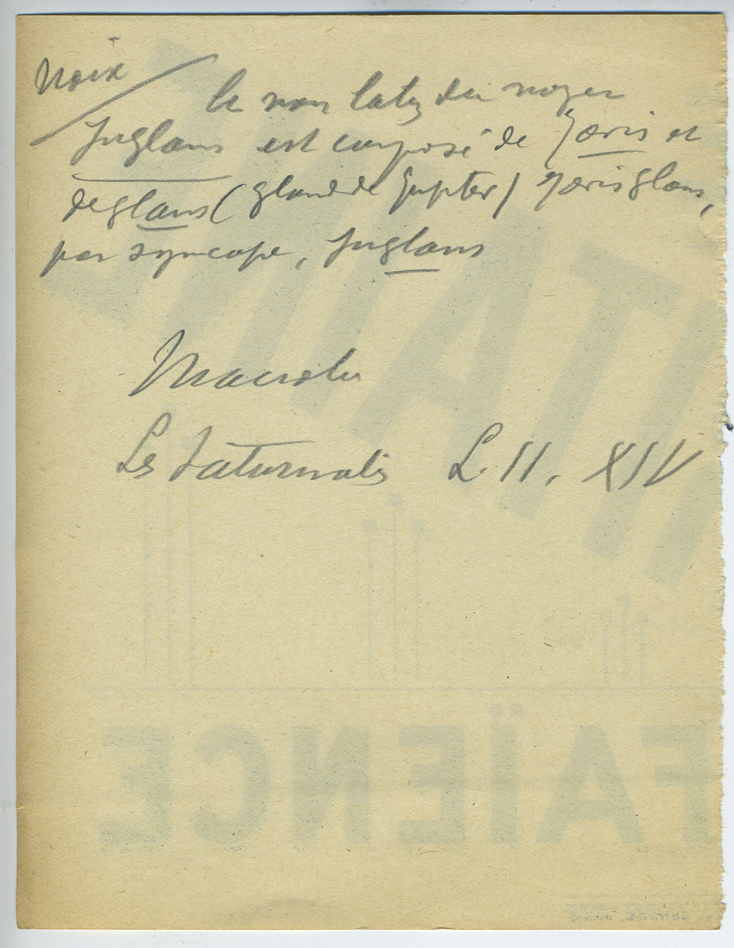 Noix
le nom latin du noyer
Juglans est composé de Jovis et
de glans (gland de Jupiter) Jovisglans,
par syncope, Juglans
Macrobe
Les Saturnales L. II. XIV
FAÏENCE